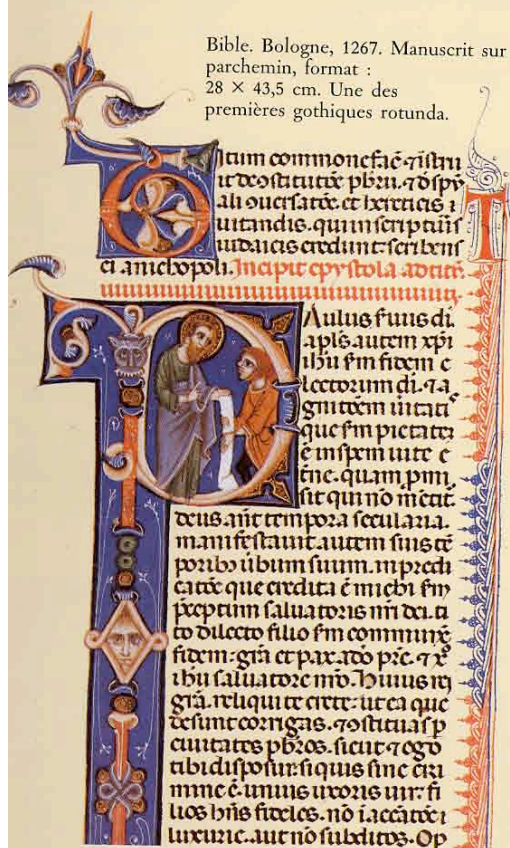 Bible. Bologne, 1267. Manuscrit sur
parchemin, format :
28 × 43,5 cm. Une des
premières gothiques rotunda.
Titum commonefac̄ ⁊ īstru
it de ↄstitutiōe pbrii. ⁊ d' spūˀ
ali ↄuersatōe. et hereticis
uitandis. qui in scripturis
iudaicis credunt: scribens
ei a nichopoli. Incipit epystola ad titū.
Aulus seruus di.
apl's autem xp̄i
ihū sm̄ fidem e
lectorum di. ⁊ a
gnitōem ueritatiˢ
que sm̄ pietatē
ē in spem uite e
tne. quam pmi
sit qui nō mētit̄
deus. an̄t tempora secularia.
manifestauit autem suis tē
poribꝫ ūbum suum. in predi
catōe que credita ē michi sm̄
p̄ceptum saluatoris nr̄i dei. ti
to dilecto filio sm̄ communē
fidem: gr̄a et pax. a dō pr̄e. ⁊ xp̄o
ihū saluatore nr̄o. Huius rei
gr̄a. reliqui te crete: ut ea que
desunt corrigas. ⁊ ↄstituas p
ciuitates pb̄ros. sicut ⁊ ego
tibi disposui: si quis sine cri
mine ē. unius uxoris uir: fi
lios hn̄s fideles. nō ī accatōe
luxurie. aut nō subditos. Op